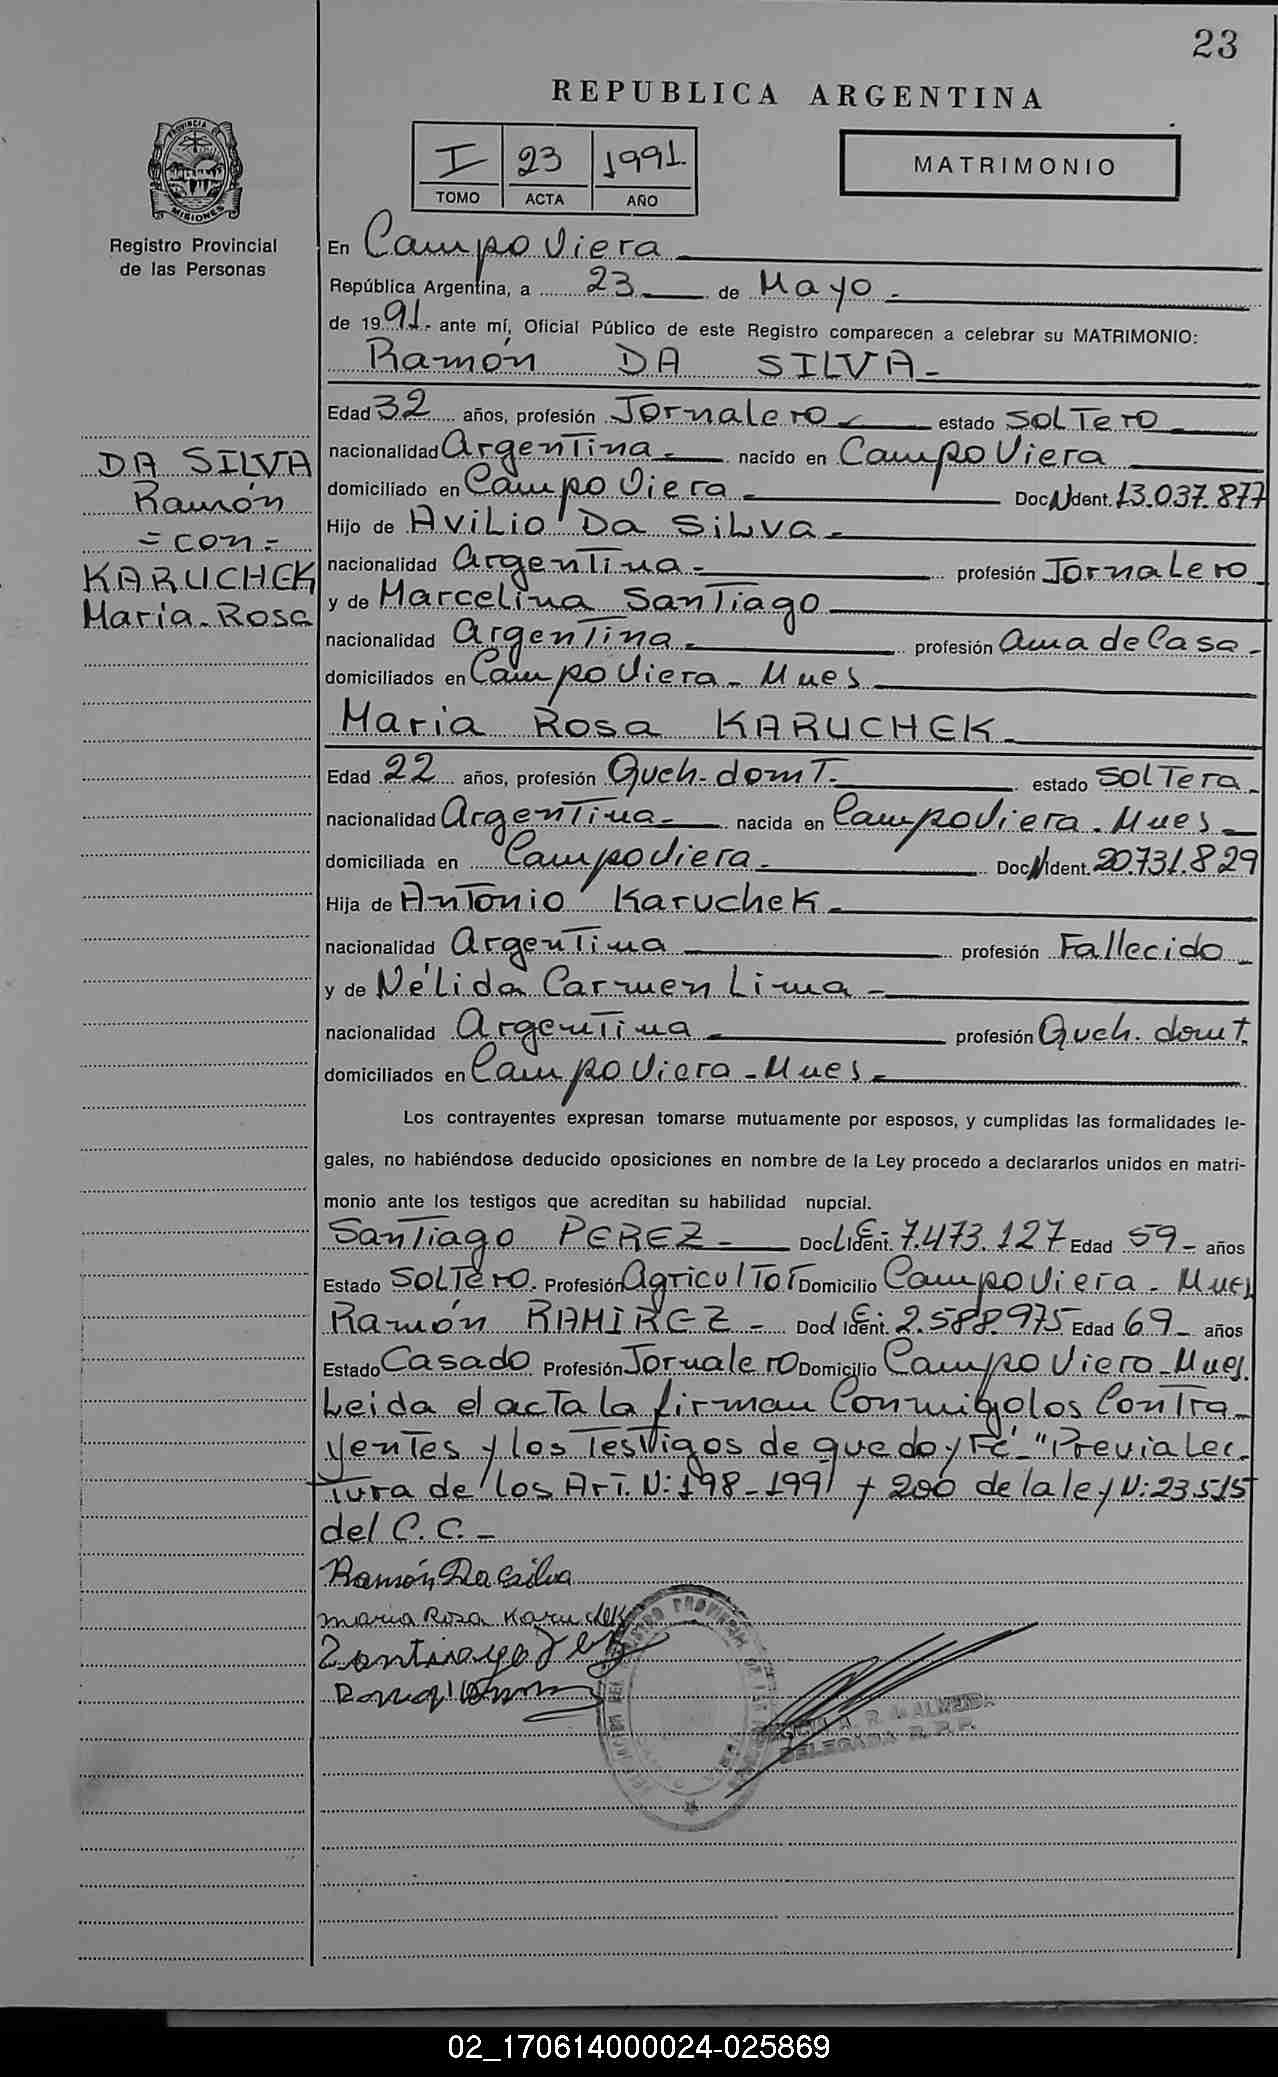 23
REPUBLICA ARGENTINA
PROVINCIA DE
MISIONES
Registro Provincial
de las Personas
I 23 1991.
TOMO ACTA AÑO
MATRIMONIO
En Campo Viera
República Argentina, a 23 de Mayo -
de 1991.- ante mí, Oficial Público de este Registro comparecen a celebrar su MATRIMONIO:
Ramón DA SILVA -
Edad 32 años, profesión Jornalero estado SolTero
nacionalidad ArgenTina - nacido en Campo Viera
domiciliado en Campo Viera - Doc N Ident. 13.037.877
Hijo de AviLio Da SiLva -
nacionalidad ArgenTina - profesión JornaLero
y de Marcelina SanTiago
nacionalidad ArgenTina - profesión Ama de Casa -
domiciliados en Campo Viera - Mnes
DA SILVA
Ramón
= con =
KARUCHEK
María Rosa
Maria Rosa KARUCHEK -
Edad 22 años, profesión Queh. domT. estado SolTera -
nacionalidad ArgenTina - nacida en Campo Viera - Mnes -
domiciliada en Campo Viera - Doc N Ident. 20.731.829
Hija de AnTonio KarucheK -
nacionalidad ArgenTina profesión Fallecido -
y de Nélida Carmen Lima -
nacionalidad ArgenTina - profesión Queh. domt.
domiciliados en Campo Viera - Mnes -
Los contrayentes expresan tomarse mutuamente por esposos, y cumplidas las formalidades le-
gales, no habiéndose deducido oposiciones en nombre de la Ley procedo a declararlos unidos en matri-
monio ante los testigos que acreditan su habilidad nupcial.
SanTiago PEREZ - Doc L Ident. E: 7.473.127 Edad 59 - años
Estado SolTero. Profesión AgriculTor Domicilio Campo Viera - Mnes
Ramón RAMIREZ - Doc Ident. E: 2.588.975 Edad 69 - años
Estado Casado Profesión Jornalero Domicilio Campo Viera - Mnes.
Leida el acta la firman Conmigo los ConTra-
yenTes y los TesTigos de que doy Fé - "Previa Lec-
Tura de los ArT. N: 198 - 199 y 200 de la ley N: 23.515
del C. C. -
Ramón Da Silva
maria Rosa Karuchek
A. R. de ALMEIDA
DELEGADA R.P.P.
02_170614000024-025869